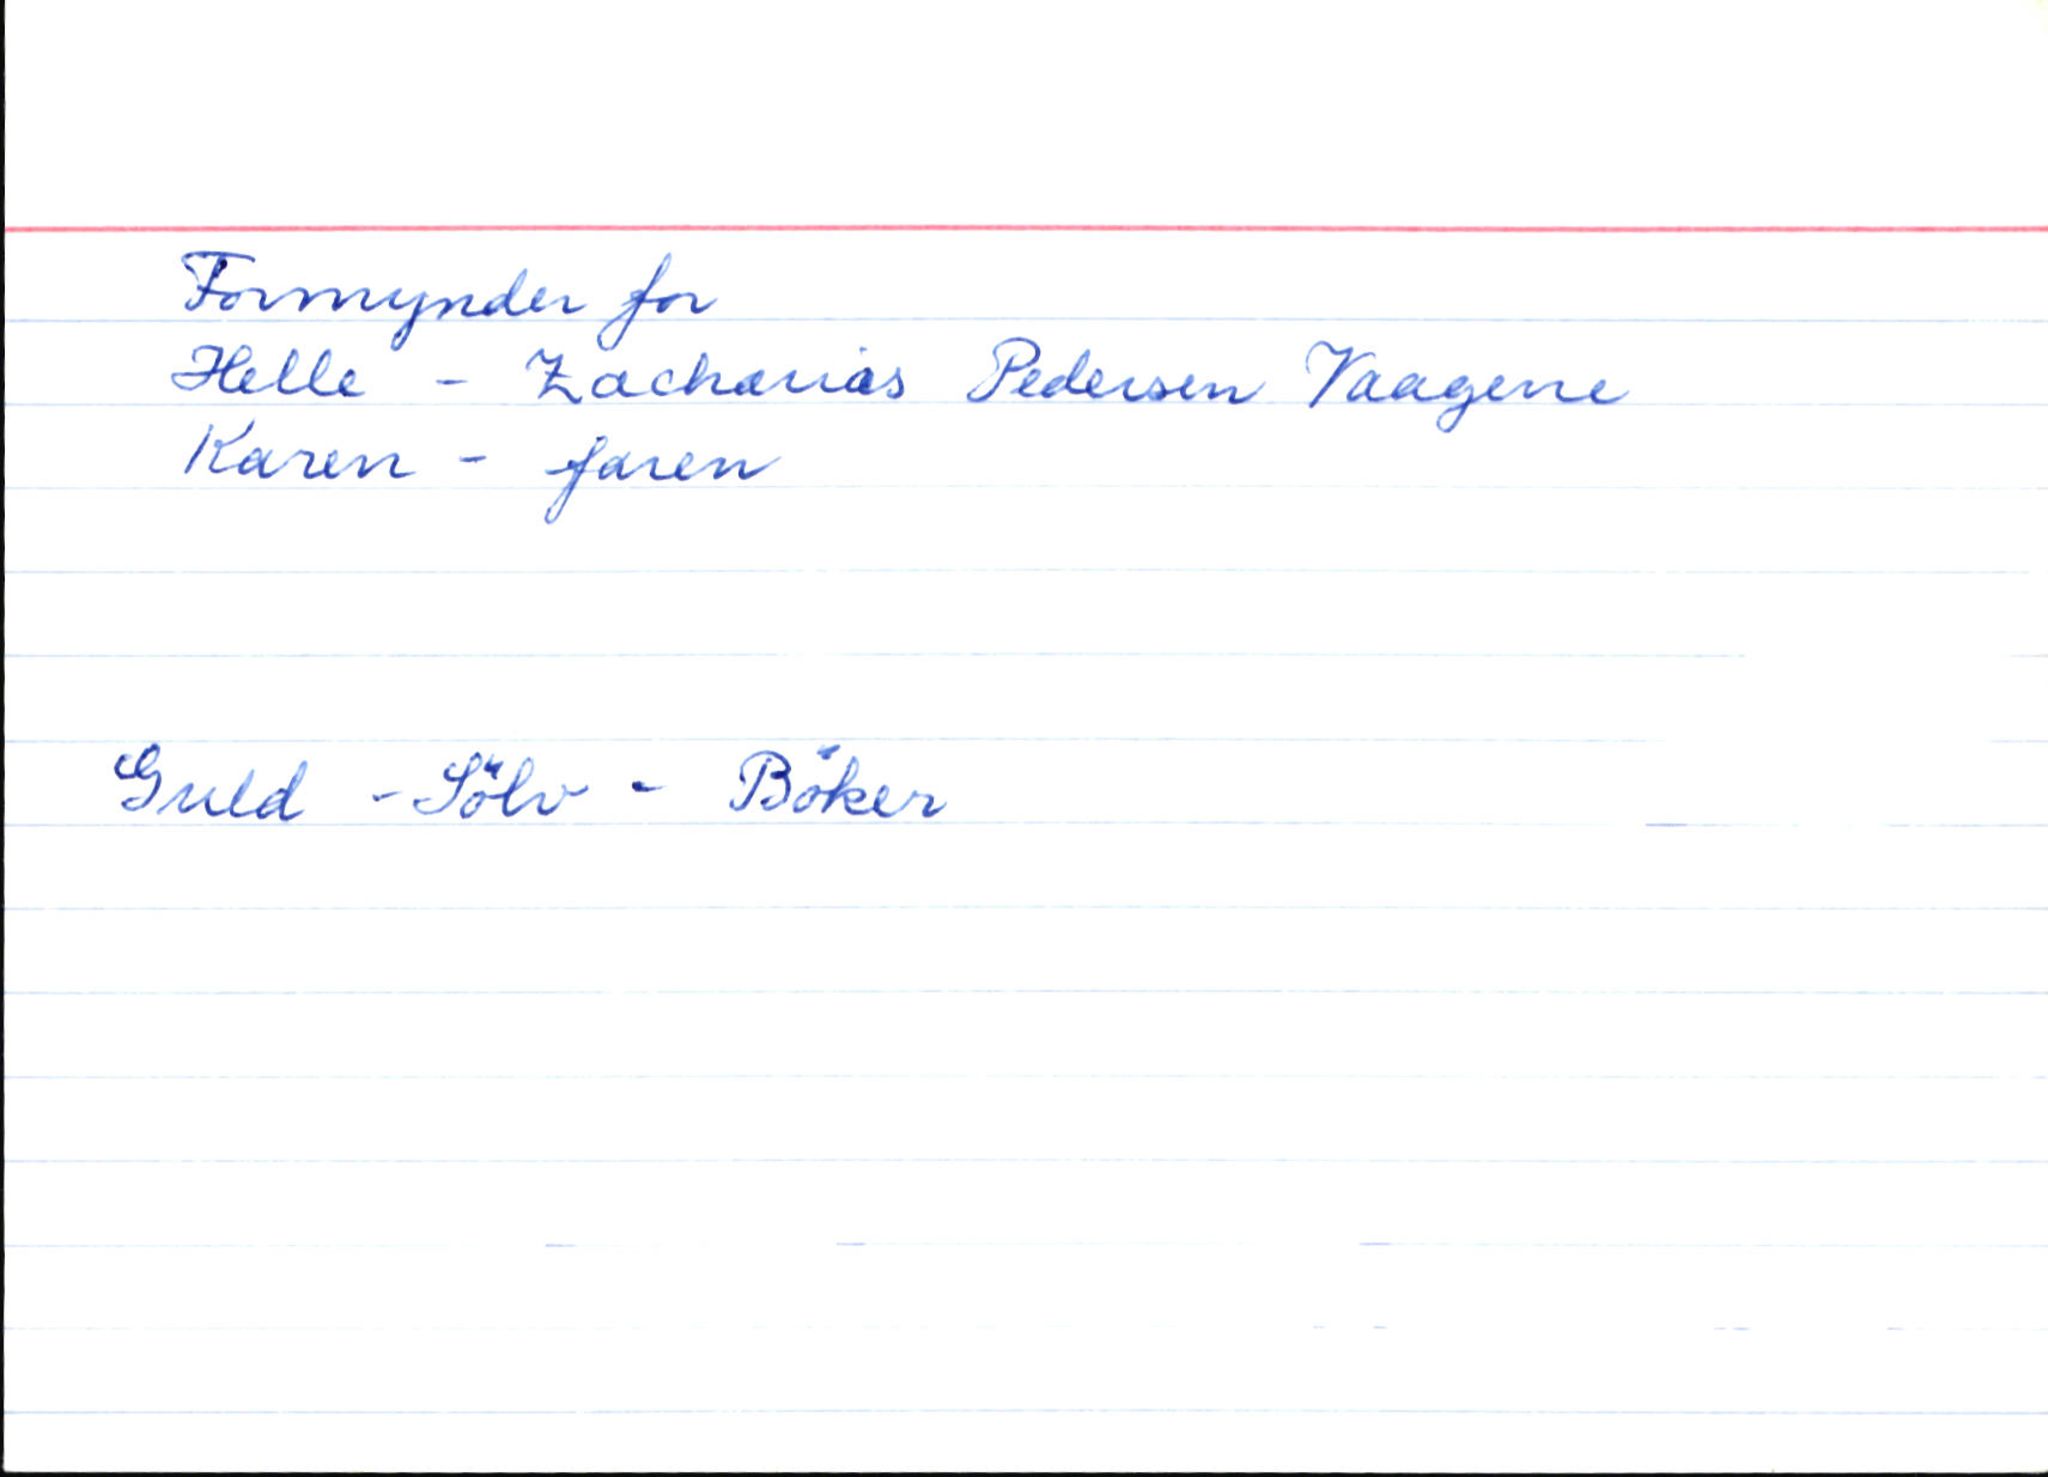 Formynder for
Helle - Zacharias Pedersen Vaagene
Karen - faren
Guld - Sölv - Böker